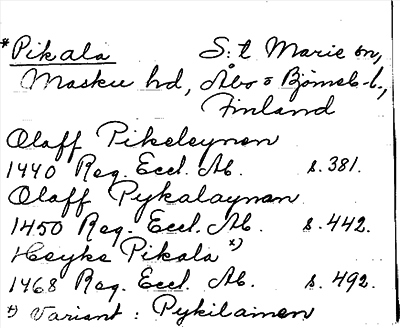 *Pikala S:t Marie sn,
Masku hd, Åbo o Björneb-l.,
Finland
Olaff Pikeleynen
1440 Reg. Eccl. Ab. s. 381.
Olaff Pykalaynan
1450 Reg. Eccl. Ab. s. 442.
Heyke Pikala *)
1468 Reg. Eccl. Ab. s. 492.
*) Variant: Pykilainen